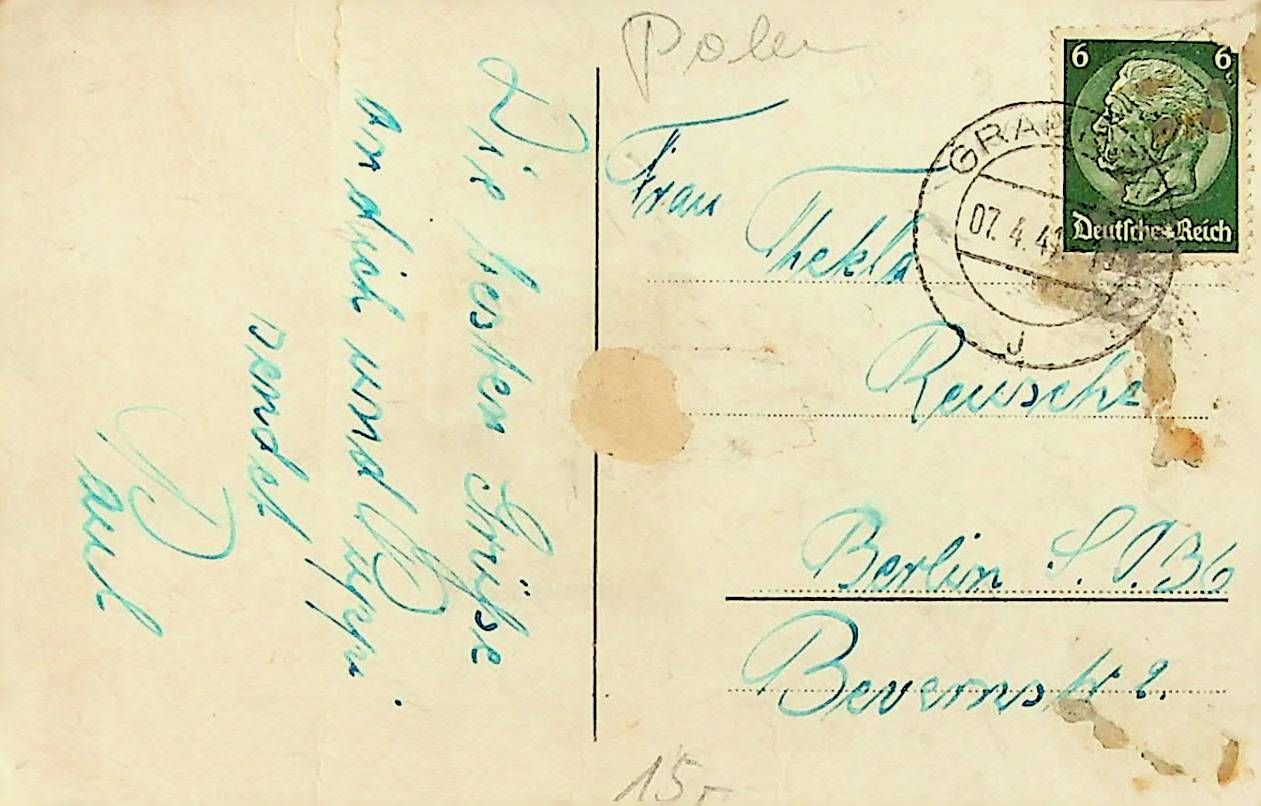 Polen
6 6
Deutsches Reich
GRA
07. 4. 41
J
Frau
Thekla
Reusche
Berlin S.O.36
Bevernstr 2.
Die besten Grüße
an dich und Peppi.
sendet
Paul
15,-